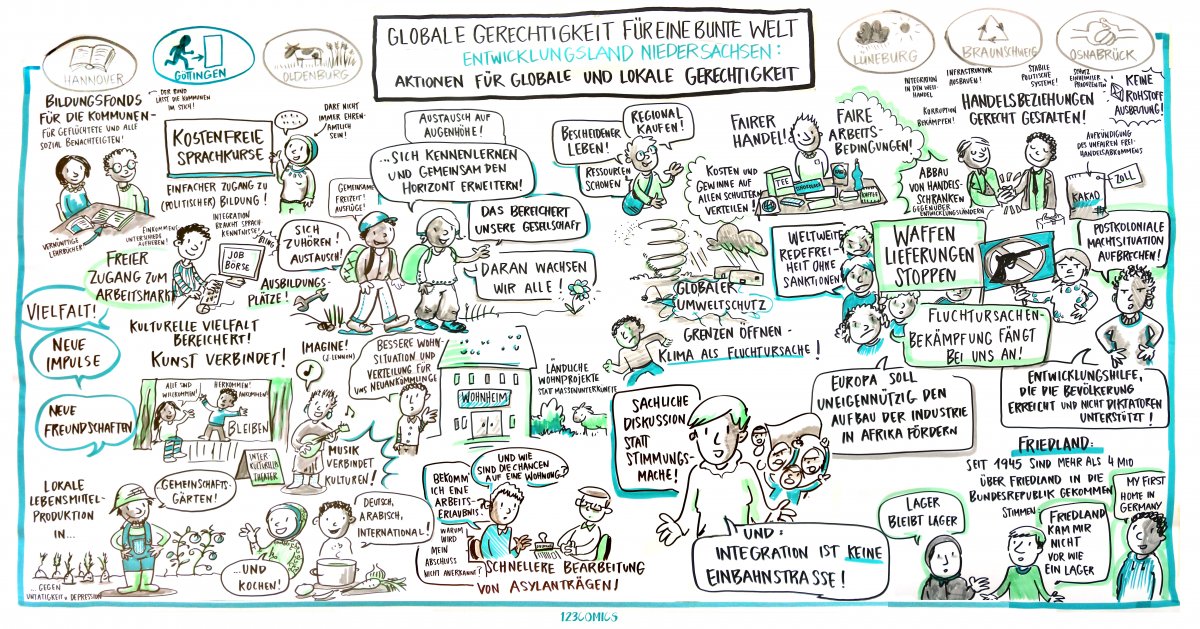 GLOBALE GERECHTIGKEIT FÜR EINE BUNTE WELT
ENTWICKLUNGSLAND NIEDERSACHSEN:
AKTIONEN FÜR GLOBALE UND LOKALE GERECHTIGKEIT
HANNOVER
GÖTTINGEN
OLDENBURG
LÜNEBURG
BRAUNSCHWEIG
OSNABRÜCK
BILDUNGSFONDS
FÜR DIE KOMMUNEN-
FÜR GEFLÜCHTETE UND ALLE
SOZIAL BENACHTEIGTEN!
DER BUND
LÄSST DIE KOMMUNEN
IM STICH!
KOSTENFREIE
SPRACHKURSE
DARF NICHT
IMMER EHREN-
AMTLICH
SEIN!
EINFACHER ZUGANG ZU
(POLITISCHER) BILDUNG!
VERNÜNFTIGE
LEHRBÜCHER!
EINKOMMENS-
UNTERSCHIEDE
AUFHEBEN!
INTEGRATION
BRAUCHT SPRACH-
KENNTNISSE!
FREIER
ZUGANG ZUM
ARBEITSMARKT
JOB
BÖRSE
BLING
AUSBILDUNGS-
PLÄTZE!
VIELFALT!
NEUE
IMPULSE
NEUE
FREUNDSCHAFTEN
KULTURELLE VIELFALT
BEREICHERT!
KUNST VERBINDET!
AUF UND
WILLKOMMEN!
HERKOMMEN!
ANKOMMEN!
BLEIBEN
INTER
KULTURELLES
THEATER
IMAGINE!
(J. LENNON)
MUSIK
VERBINDET
KULTUREN!
LOKALE
LEBENSMITTEL-
PRODUKTION
IN...
GEMEINSCHAFTS-
GÄRTEN!
...GEGEN
UNTÄTIGKEIT & DEPRESSION
...UND
KOCHEN!
DEUTSCH,
ARABISCH,
INTERNATIONAL!
AUSTAUSCH AUF
AUGENHÖHE!
...SICH KENNENLERNEN
UND GEMEINSAM DEN
HORIZONT ERWEITERN!
GEMEINSAME
FREIZEIT!
AUSFLÜGE!
SICH
ZUHÖREN!
AUSTAUSCH!
DAS BEREICHERT
UNSERE GESELLSCHAFT
DARAN WACHSEN
WIR ALLE!
BESSERE WOHN-
SITUATION UND
VERTEILUNG FÜR
UNS NEUANKÖMMLINGE
WOHNHEIM
LÄNDLICHE
WOHNPROJEKTE
STATT MASSENUNTERKÜNFTE
BEKOMM
ICH EINE
ARBEITS-
ERLAUBNIS?
UND WIE
SIND DIE CHANCEN
AUF EINE WOHNUNG?
WARUM
WIRD
MEIN
ABSCHLUSS
NICHT ANERKANNT?
SCHNELLERE BEARBEITUNG
VON ASYLANTRÄGEN!
BESCHEIDENER
LEBEN!
REGIONAL
KAUFEN!
RESSOURCEN
SCHONEN
FAIRER
HANDEL!
KOSTEN UND
GEWINNE AUF
ALLEN SCHULTERN
VERTEILEN!
TEE
SCHOKOLADE
KAFFEE
FAIRE
ARBEITS-
BEDINGUNGEN!
GLOBALER
UMWELTSCHUTZ
GRENZEN ÖFFNEN -
KLIMA ALS FLUCHTURSACHE!
INTEGRATION
IN DEN WELT-
HANDEL
INFRASTRUKTUR
AUSBAUEN!
STABILE
POLITISCHE
SYSTEME!
SCHUTZ
EINHEIMISCHER
PRODUZENTEN
KEINE
ROHSTOFF
AUSBEUTUNG!
KORRUPTION
BEKÄMPFEN!
HANDELSBEZIEHUNGEN
GERECHT GESTALTEN!
ABBAU
VON HANDELS-
SCHRANKEN
GEGENÜBER
ENTWICKLUNGSLÄNDERN
AUFKÜNDIGUNG
DES UNFAIREN FREI-
HANDELSABKOMMENS
ZOLL
KAKAO
WELTWEITE
REDEFREI-
HEIT OHNE
SANKTIONEN!
WAFFEN
LIEFERUNGEN
STOPPEN
POSTKOLONIALE
MACHTSITUATION
AUFBRECHEN!
FLUCHTURSACHEN-
BEKÄMPFUNG FÄNGT
BEI UNS AN!
EUROPA SOLL
UNEIGENNÜTZIG DEN
AUFBAU DER INDUSTRIE
IN AFRIKA FÖRDERN
ENTWICKLUNGSHILFE,
DIE DIE BEVÖLKERUNG
ERREICHT UND NICHT DIKTATOREN
UNTERSTÜTZT!
SACHLICHE
DISKUSSION
STATT
STIMMUNGS-
MACHE!
UND:
INTEGRATION IST KEINE
EINBAHNSTRASSE!
FRIEDLAND:
SEIT 1945 SIND MEHR ALS 4 MIO
ÜBER FRIEDLAND IN DIE
BUNDESREPUBLIK GEKOMMEN
STIMMEN
LAGER
BLEIBT LAGER
FRIEDLAND
KAM MIR
NICHT
VOR WIE
EIN LAGER
MY FIRST
HOME IN
GERMANY
123COMICS